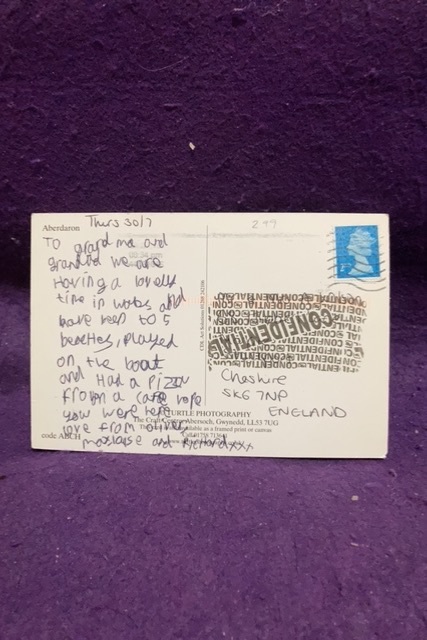 Aberdaron
Thurs 30/7
TO grandma and
grandad we are
Having a lovely
time in wales and
have been to 5
beaches, played
on the boat
and Had a Pizza
from a cafe hope
you were here
love from oliver,
and Richard xxx
code ABCH
299
CONFIDENTIAL
Cheshire
SK6 7NP
ENGLAND
TURTLE PHOTOGRAPHY
The Craft Centre, Abersoch, Gwynedd, LL53 7UG
available as a framed print or canvas